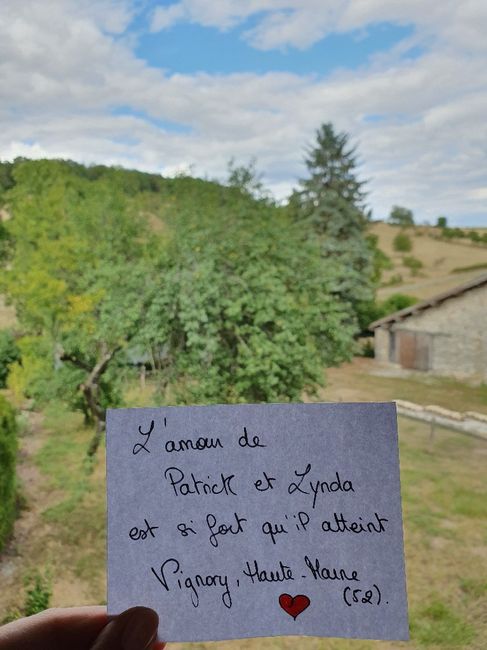 L'amour de
Patrick et Lynda
est si fort qu'il atteint
Vignory, Haute-Marne
(52).